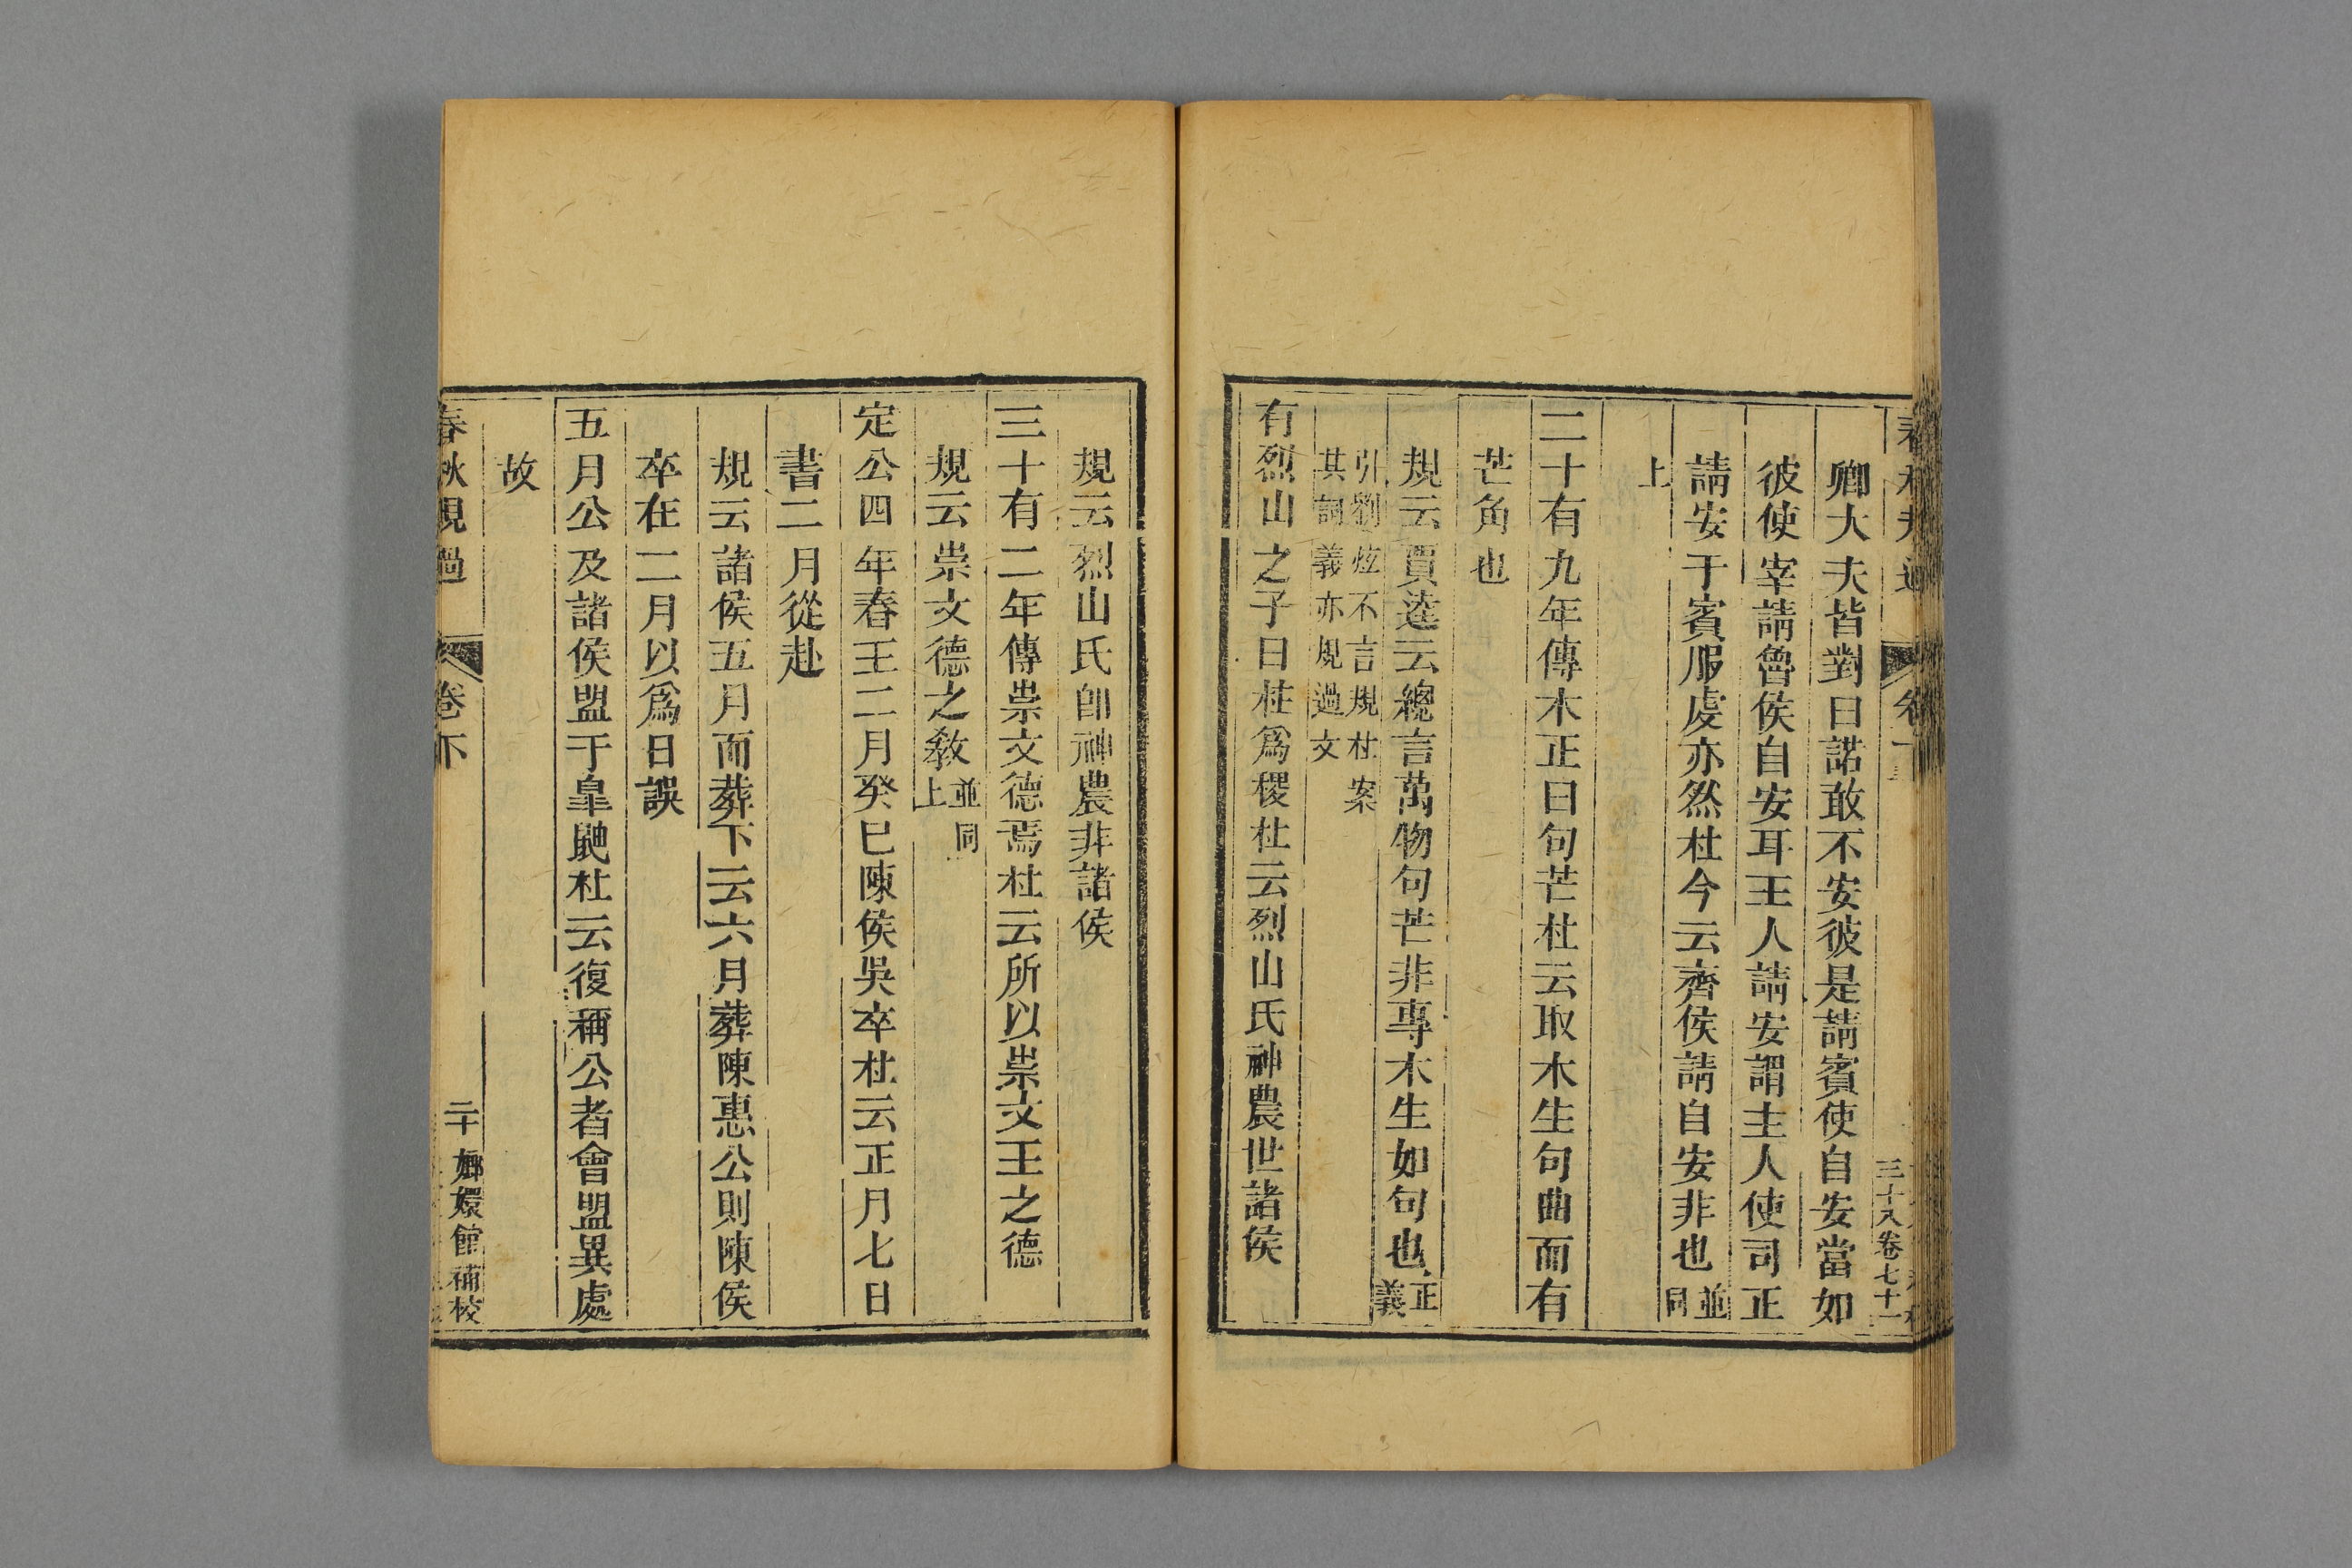 三十八卷七十一
卿大夫皆對曰諾敢不安彼是請賓使自安當如
彼使宰請魯侯自安耳王人請安謂主人使司正
請安于賓服虔亦然杜今云齊侯請自安非也並同
上
二十有九年傳木正曰句芒杜云取木生句曲而有
芒角也
規云賈逵云總言萬物句芒非專木生如句也正義
引劉炫不言規杜案
其詞義亦規過文
有烈山之子曰柱爲稷杜云烈山氏神農世諸侯
規云烈山氏卽神農非諸侯
三十有二年傳祟文德焉杜云所以祟文王之德
規云祟文德之敎並同上
定公四年春王二月癸巳陳侯吳卒杜云正月七日
書二月從赴
規云諸侯五月而葬下云六月葬陳惠公則陳侯
卒在二月以爲日誤
五月公及諸侯盟于皐鼬杜云復稱公者會盟異處
故
春秋規過 卷下 二十 嫏嬛館補校